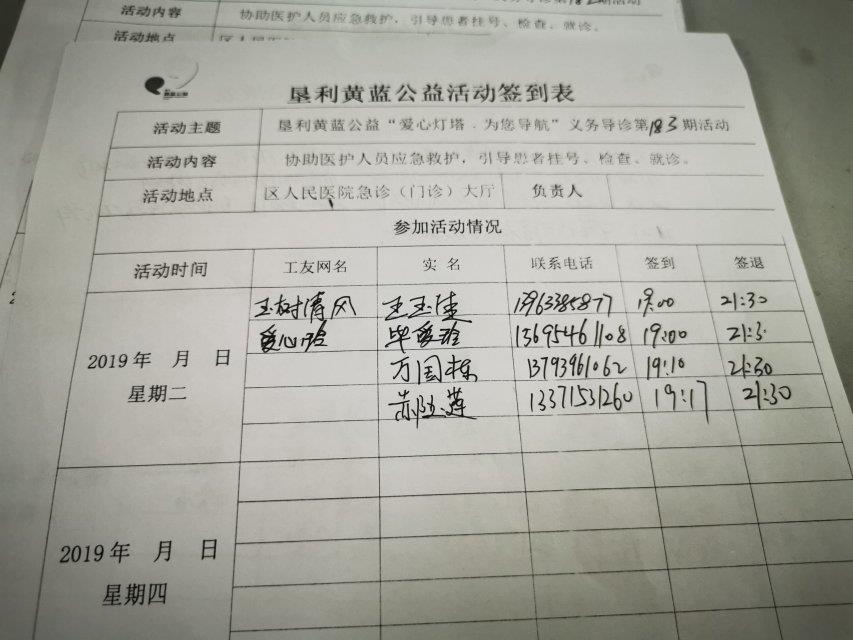 活动内容 协助医护人员应急救护，引导患者挂号、检查、就诊。
活动地点
垦利黄蓝公益活动签到表
活动主题 垦利黄蓝公益“爱心灯塔·为您导航”义务导诊第183期活动
活动内容 协助医护人员应急救护，引导患者挂号、检查、就诊。
活动地点 区人民医院急诊（门诊）大厅 负责人
参加活动情况
活动时间 工友网名 实名 联系电话 签到 签退
玉树清风 王玉佳 13963385877 19:00 21:30
爱心 毕爱玲 13695461108 19:00 21:3
2019年 月 日
星期二
万国栋 13793961062 19:10 21:30
莲 13371531260 19:17 21:30
2019年 月 日
星期四